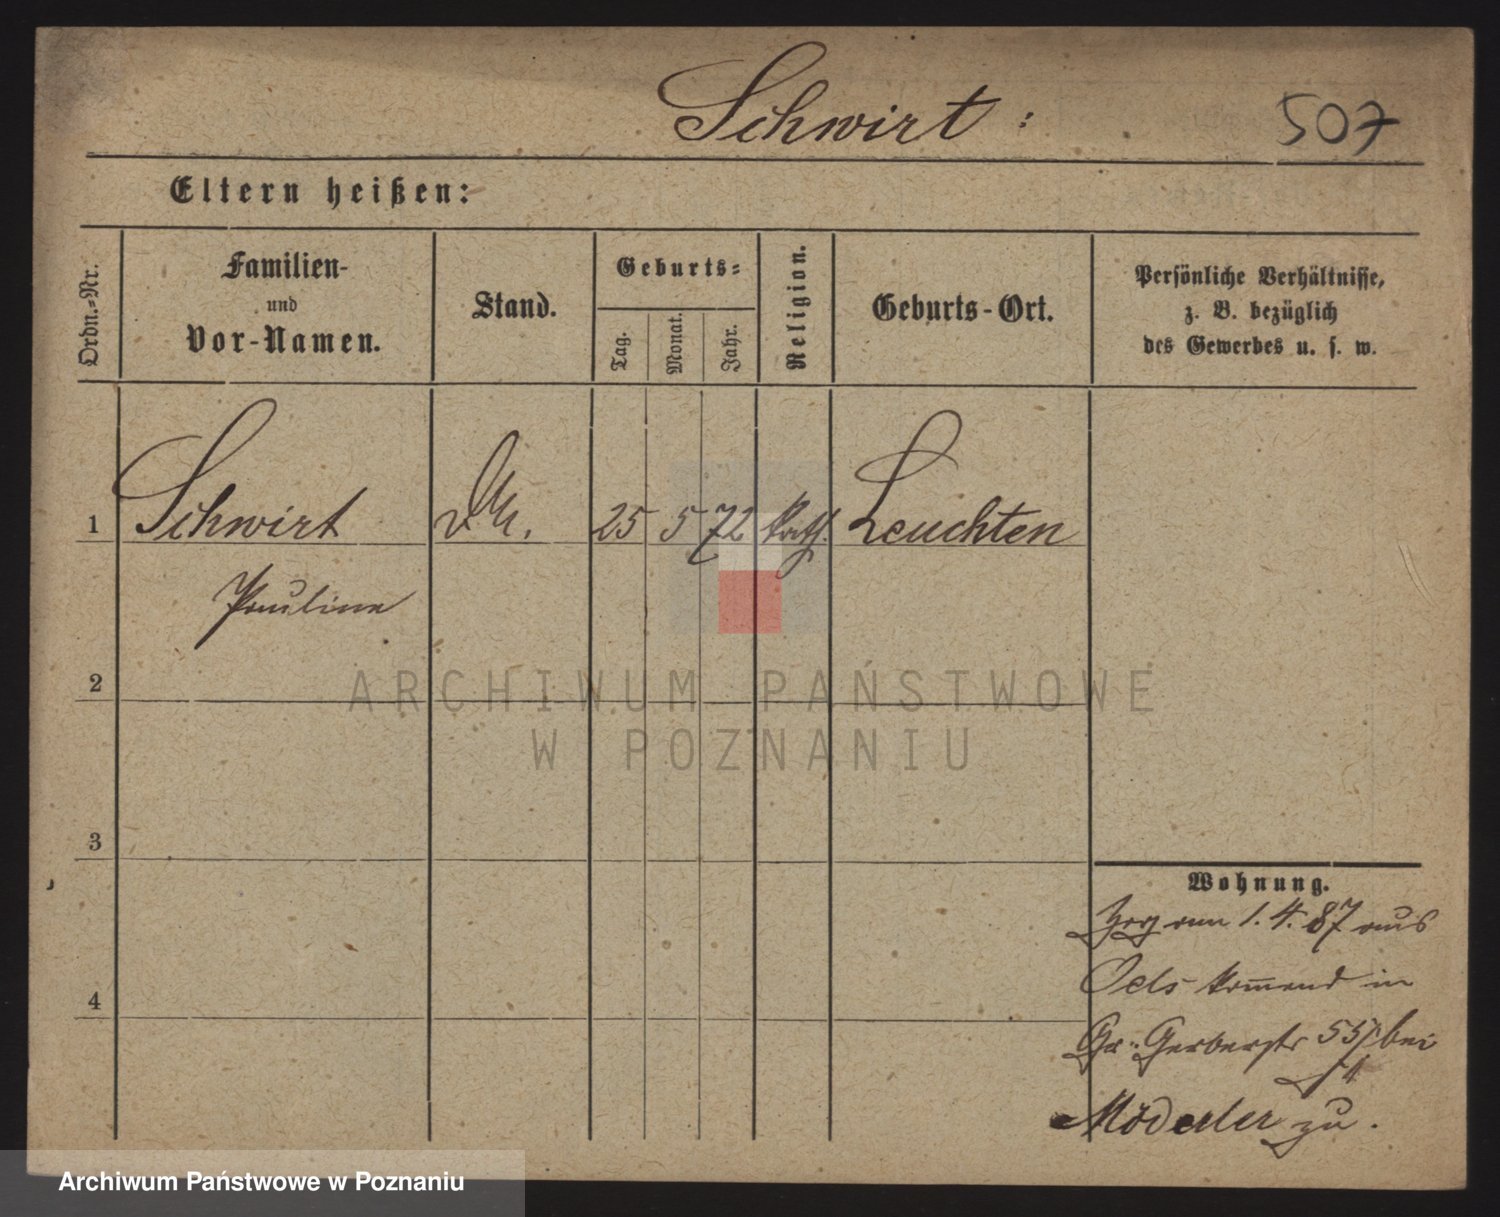 Schwirt :
507
Eltern heißen:
Ordn.-Nr.
Familien-
und
Vor-Namen.
Stand.
Geburts-
Tag.
Monat.
Jahr.
Religion.
Geburts-Ort.
Persönliche Verhältnisse,
z. B. bezüglich
des Gewerbes u. s. w.
1 Schwirt 25 5 72 kath. Leuchten
Pauline
2
3
4
ARCHIWUM PAŃSTWOWE
W POZNANIU
Wohnung.
am 1.4.87 aus
Oels kom̅end in
Gr. Gerberstr 55 bei
zu.
Archiwum Państwowe w Poznaniu